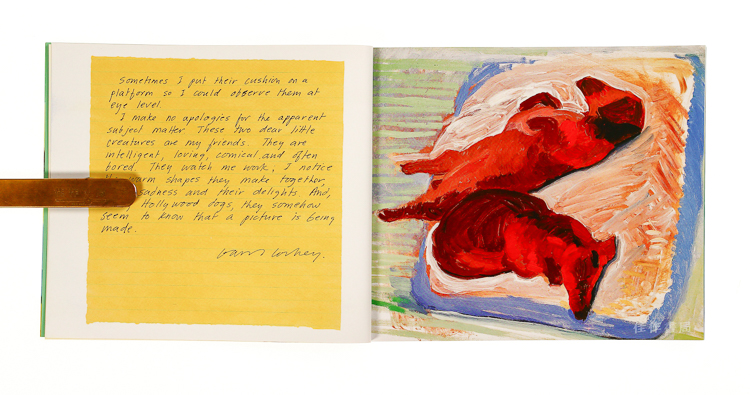 Sometimes I put their cushion on a
platform so I could observe them at
eye level.
I make no apologies for the apparent
subject matter. These two dear little
creatures are my friends. They are
intelligent, loving, comical and often
bored. They watch me work, I notice
warm shapes they make together
sadness and their delights. And,
Hollywood dogs, they somehow
seem to know that a picture is being
made.
David Hockney.
佳作書局